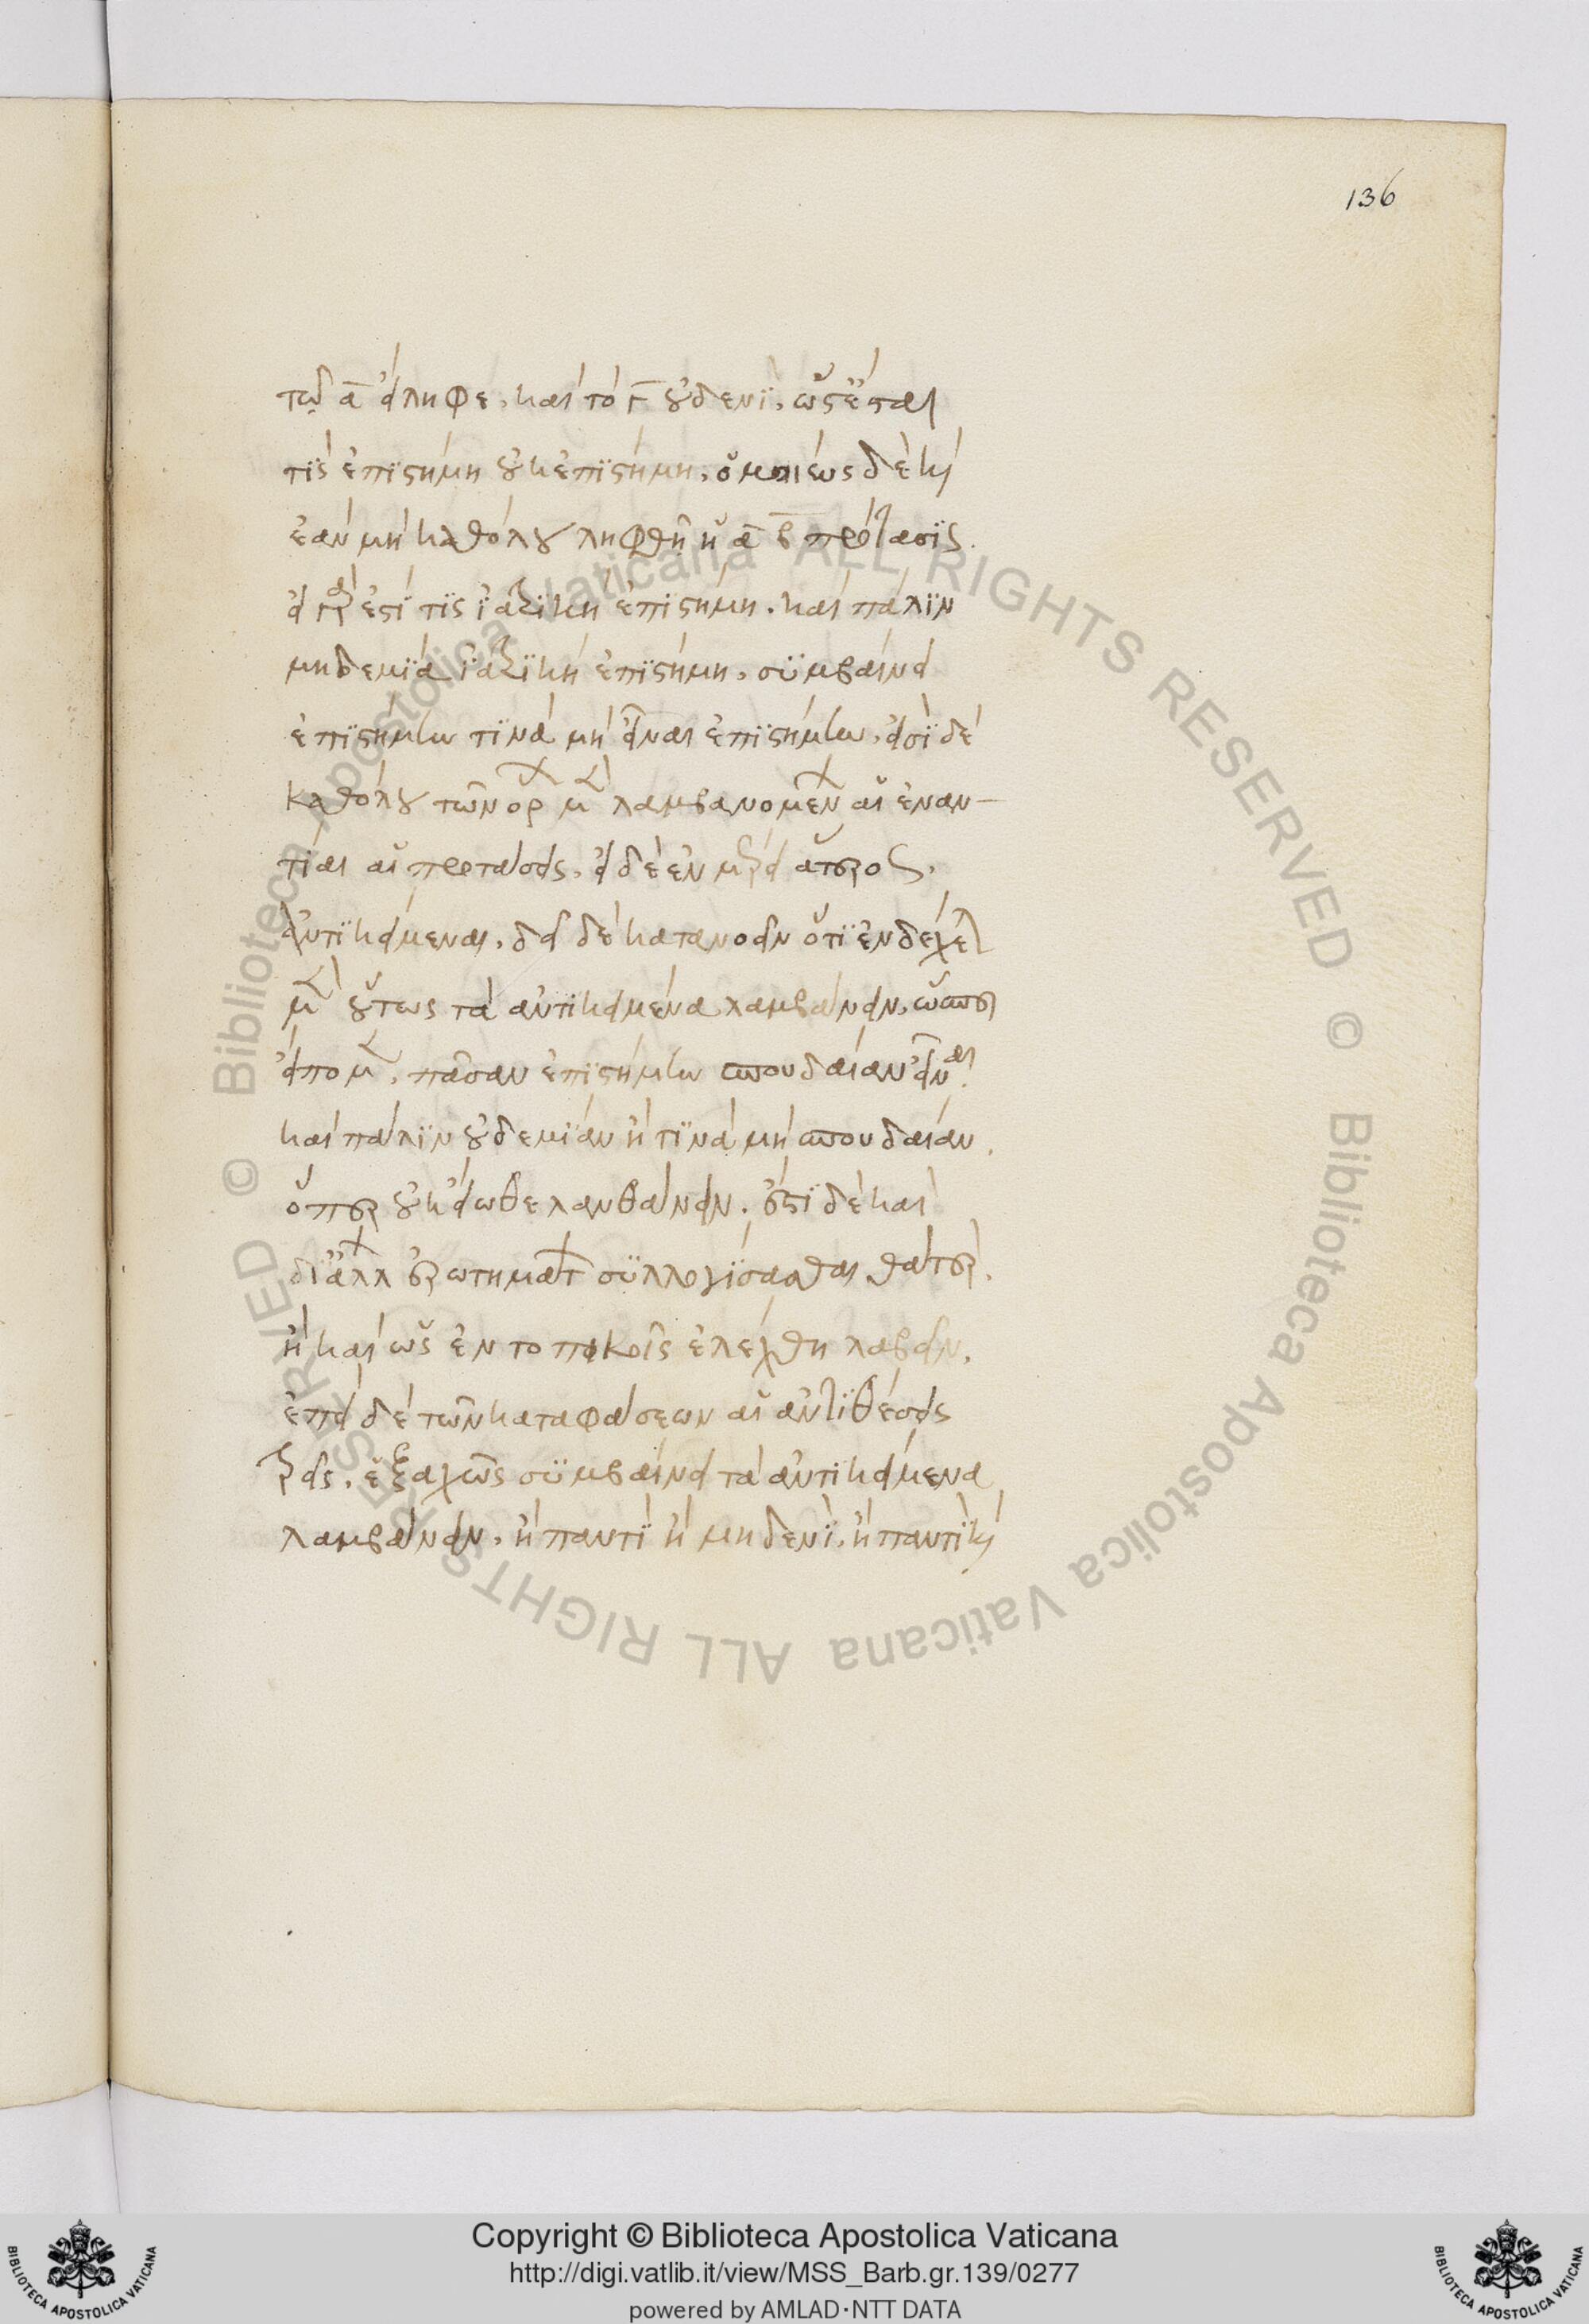 136
τῶ δ ᾱ εἴληφε, καὶ τὸ Γ οὐδενὶ, ὥστ ἔσται
τὶς ἐπιστήμη οὐκ ἐπιστήμη. ὁμοίως δὲ κ
ἐὰν μὴ καθόλου ληφθῆ ἡ ᾱ β̄ πρότασις.
εἰ γάρ ἐστί τις ἰατρικὴ ἐπιστήμη. καὶ πάλιν
μηδεμία ἰατρικὴ ἐπιστήμη, συμβαίνει
ἐπιστήμην τινὰ μὴ εἶναι ἐπιστήμην. εἰσὶ δὲ
καθόλου τῶν ὅρ μ λαμβανομέν αἱ ἐναν-
τίαι αἱ προτάσεις. εἰ δὲ ἐν μέρει ἅτερος,
ἀντικείμεναι. δεῖ δὲ κατανοεῖν ὅτι ἐνδέχε
μ οὕτως τὰ ἀντικείμενα λαμβάνειν, ὥσπερ
εἴπομ. πᾶσαν ἐπιστήμην σπουδαίαν εἶναι
καὶ πάλιν οὐδεμίαν ἢ τινὰ μὴ σπουδαίαν.
ὅπερ οὐκ εἴωθε λανθάνειν. ἔστι δὲ καὶ
δι ἄλλ ἐρωτημάτ συλλογίσασθαι θάτερ.
ἢ καὶ ὡς ἐν τοπικοῖς ἐλέχθη λαβεῖν.
ἐπεὶ δὲ τῶν καταφάσεων αἱ ἀντιθέσεις
τρεῖς. ἑξαχῶς συμβαίνει τὰ ἀντικείμενα
λαμβάνειν, ἢ παντὶ ἢ μηδενὶ. ἢ παντὶ κ
Copyright © Biblioteca Apostolica Vaticana
http://digi.vatlib.it/view/MSS_Barb.gr.139/0277
powered by AMLAD·NTT DATA
BIBLIOTECA APOSTOLICA VATICANA
BIBLIOTECA APOSTOLICA VATICANA
© Biblioteca Apostolica Vaticana ALL RIGHTS RESERVED © Biblioteca Apostolica Vaticana ALL RIGHTS RESERVED